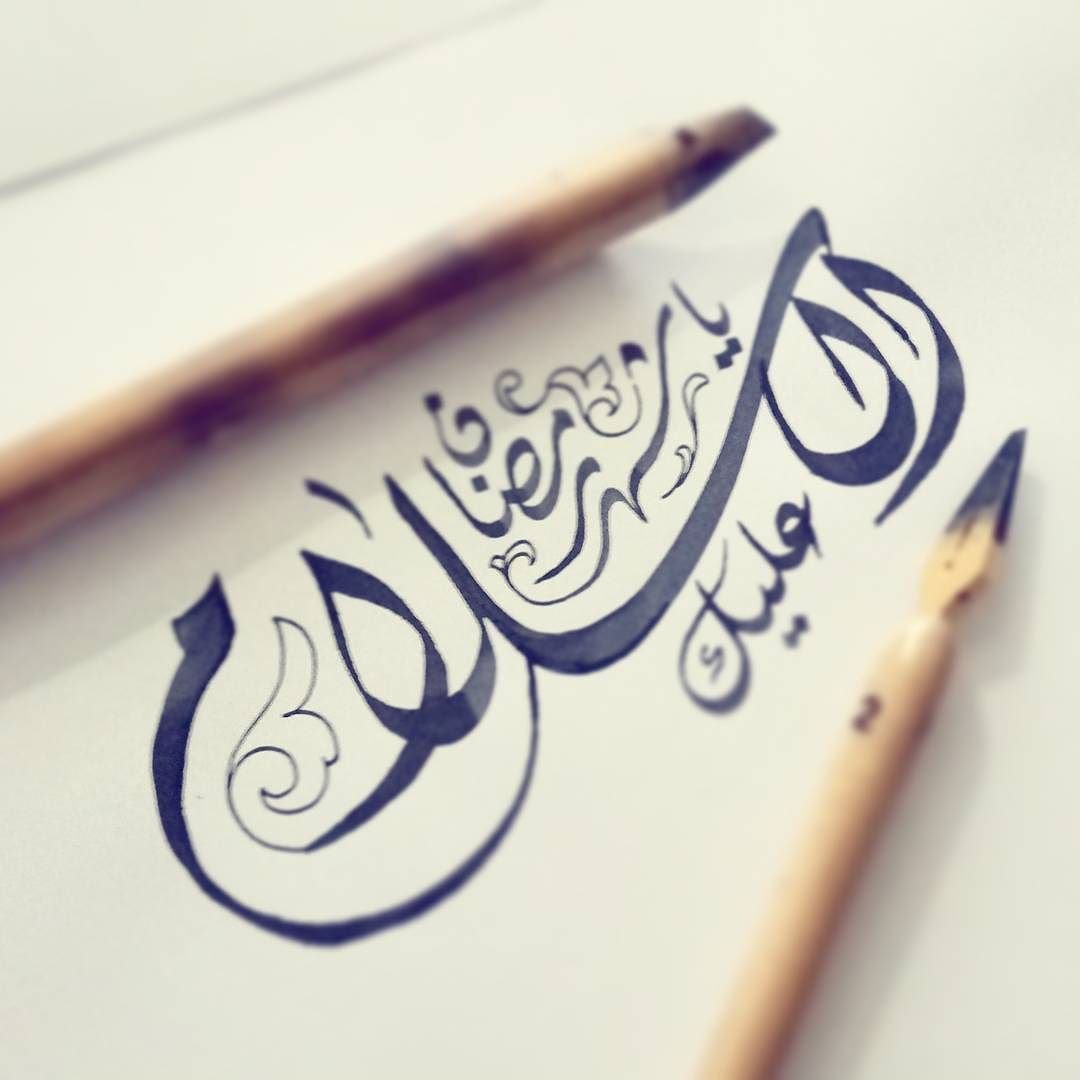 السلام
عليك
يا شهر
رمضان
2